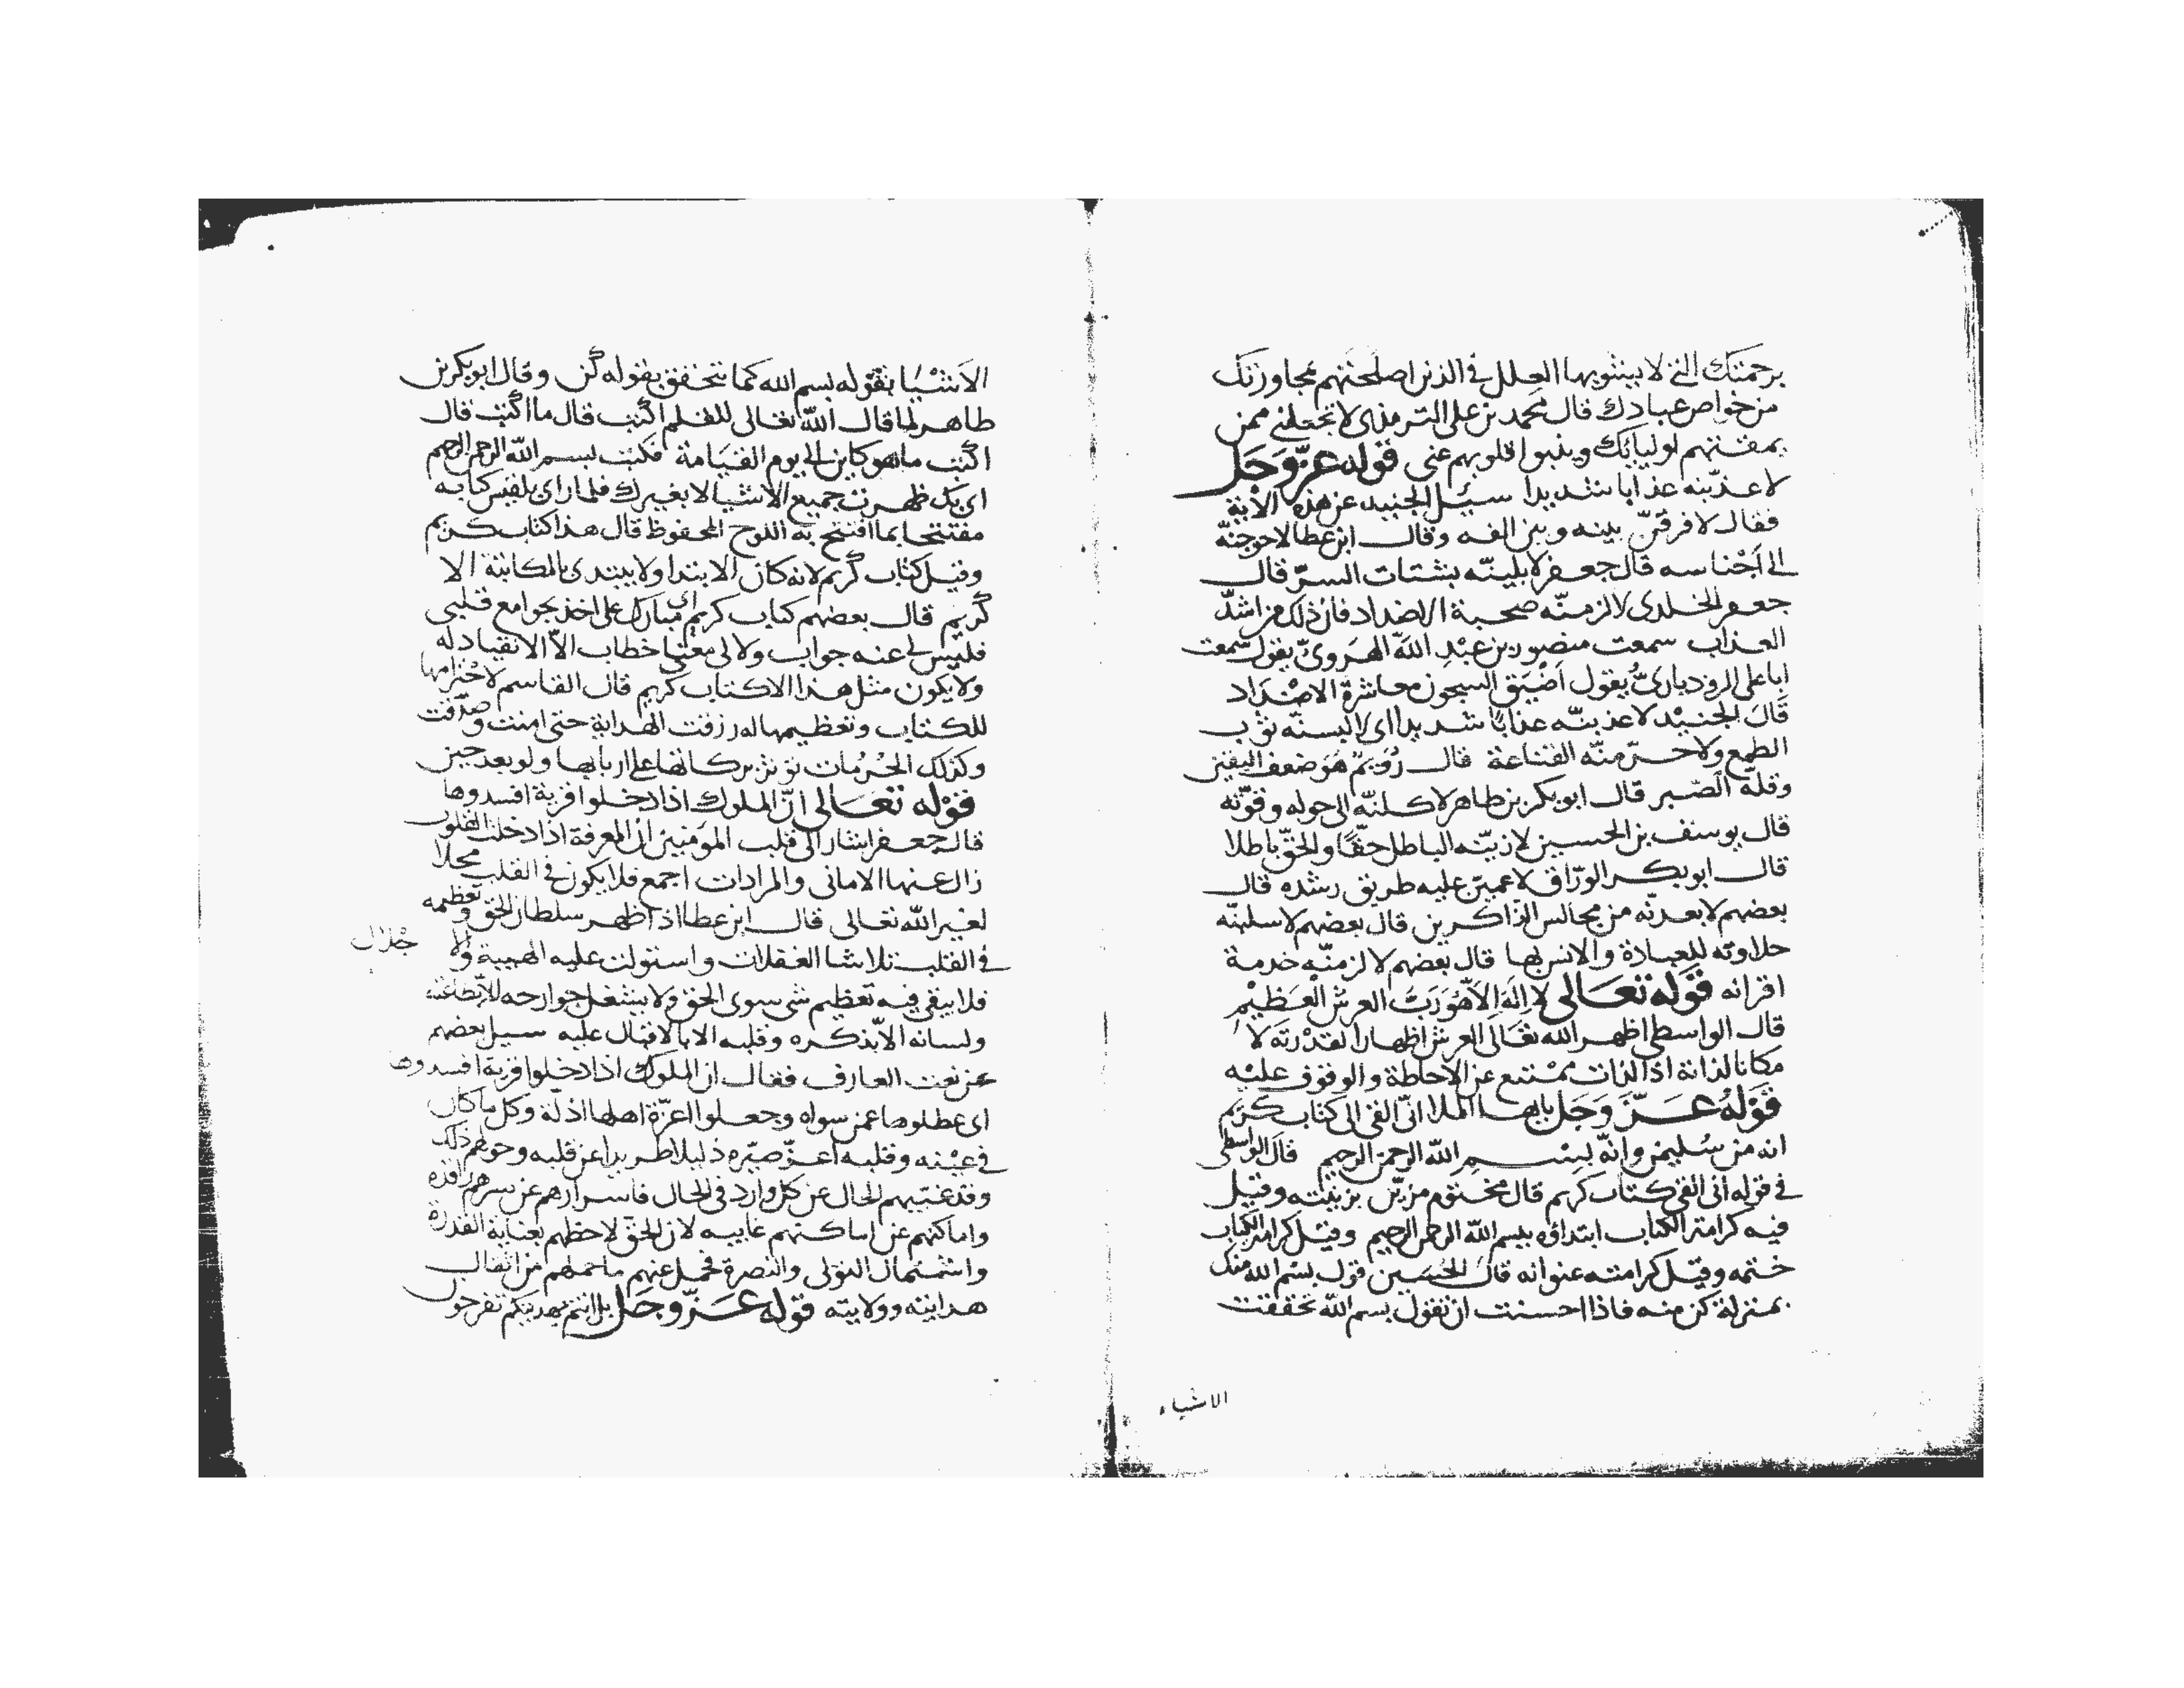 برحمتك التي لا يشوبها العلل في الذين اصلحتهم بمجاورتك
من خواص عبادك قال محمد بن علي الترمذي لا تجعلني ممن
بمقتهم اوليائك وينبوا قلوبهم عني قوله عز وجل
لاعذبنه عذابا شديدا سئل الجنيد عن هذه الاية
فقال لافرقن بينه وبين الفه وقال ابن عطا لاحوجنه
الى اجناسه قال جعفر لابلينه بشتات السر قال
جعفر الخلدى لالزمنه صحبة الاضداد فان ذلك من اشد
العذاب سمعت منصور بن عبد الله الهروي يقول سمعت
ابا على الروذباري يقول اضيق السجون معاشرة الاضداد
قال الجنيد لاعذبنه عذابا شديدا اى لالبسنه ثوب
الطمع ولاحرمنه القناعة قال رويم هو ضعف اليقين
وقلة الصبر قال ابو بكر بن طاهر لاكلنه الى حوله وقوته
قال يوسف بن الحسين لازينه الباطل حقا والحق باطلا
قال ابو بكر الوراق لاعمين عليه طريق رشده قال
بعضهم لابعدنه من مجالس الذاكرين قال بعضهم لاسلبنه
حلاوته للعبادة والانس بها قال بعضهم لالزمنه خدمة
اقرانه قوله تعالى لا اله الا هو رب العرش العظيم
قال الواسطى اظهر الله تعالى العرش اظهارا لقدرته لا
مكانا لذاته اذ الذات ممتنع عن الاحاطة والوقوف عليه
قوله عز وجل يايها الملا انى القى الى كتاب كريم
انه من سليمن وانه بسم الله الرحمن الرحيم قال الواسطى
في قوله انى القى كتاب كريم قال مختوم مزين بزينته وقيل
فيه كرامة الكتاب ابتداؤه ببسم الله الرحمن الرحيم وقيل كرامة الكتاب
ختمه وقيل كرامته عنوانه قال الحسين قول بسم الله منك
بمنزلة كن منه فاذا احسنت ان تقول بسم الله تحققت
الاشياء
الاشيا بقوله بسم الله كما تتحقق بقوله كن وقال ابو بكر بن
طاهر لما قال الله تعالى للقلم اكتب قال ما اكتب قال
اكتب ما هو كاين الى يوم القيامة فكتب بسم الله الرحمن الرحيم
اى بك ظهرت جميع الاشيا لا بغيرك فلما راى بلقيس كتابه
مفتتحا بما افتتح به اللوح المحفوظ قال هذا كتاب كريم
وقيل كتاب كريم لانه كان الابتدا ولا يبتدى بالمكاتبة الا
كريم قال بعضهم كتاب كريم اى مبارك على اخذ بجوامع قلبى
فليس لى عنه جواب ولا لى معنا خطاب الا الانقياد له
ولا يكون مثل هذا الا كتاب كريم قال القاسم لاحترامها
للكتاب وتعظيمها له رزقت الهداية حتى امنت وصدقت
وكذلك الحرمات تؤثر بركاتها على اربابها ولو بعد حين
قوله تعالى ان الملوك اذا دخلوا قرية افسدوها
قال جعفر اشار الى قلب المومنين ان المعرفة اذا دخلت القلوب
زال عنها الامانى والمرادات اجمع فلا يكون في القلب محلا
لغير الله تعالى قال ابن عطا اذا ظهر سلطان الحق وتعظيمه
في القلب تلاشا الغفلات واستولت عليه الهيبة والا
جلال
فلا يبقى فيه تعظيم شى سوى الحق ولا يشتغل جوارحه الا بطاعته
ولسانه الا بذكره وقلبه الا بالاقبال عليه سيل بعضهم
عن نعت العارف فقال ان الملوك اذا دخلوا قرية افسدوها
اى عطلوها عمن سواه وجعلوا اعزة اهلها اذلة وكل ما كان
في عينه وقلبه اعز صيره ذليلا طريدا عن قلبه وحولهم ذلك
وقد غيبهم الحال عن كل وارد في الحال فاسرارهم عن سرهم
واماكنهم عن اماكنهم غايبه لان الحق لاحظهم بعناية القدرة
واشتمال التولى والنصرة فحمل عنهم ما حملهم من اثقال
هدايته وولايته قوله عز وجل بل انتم بهديتكم تفرحون